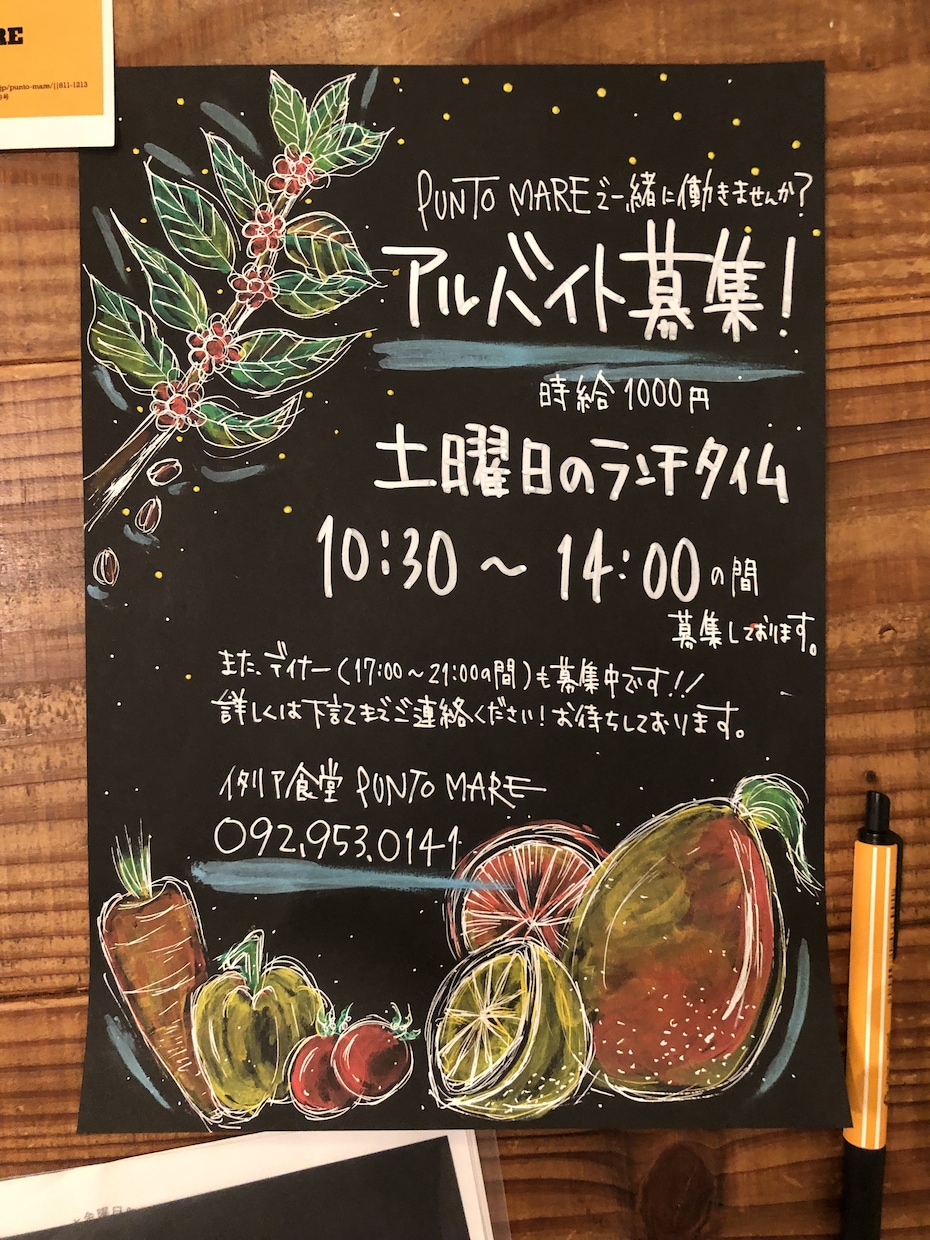 RE
jp/punto-mare/||811-1213
号
PUNTO MAREで一緒に働きませんか?
アルバイト募集!
時給1000円
土曜日のランチタイム
10:30～14:00の間
募集しております。
また、ディナー(17:00～21:00の間)も募集中です!!
詳しくは下記までご連絡ください!お待ちしております。
イタリア食堂 PUNTO MARE
092.953.0141
金曜日